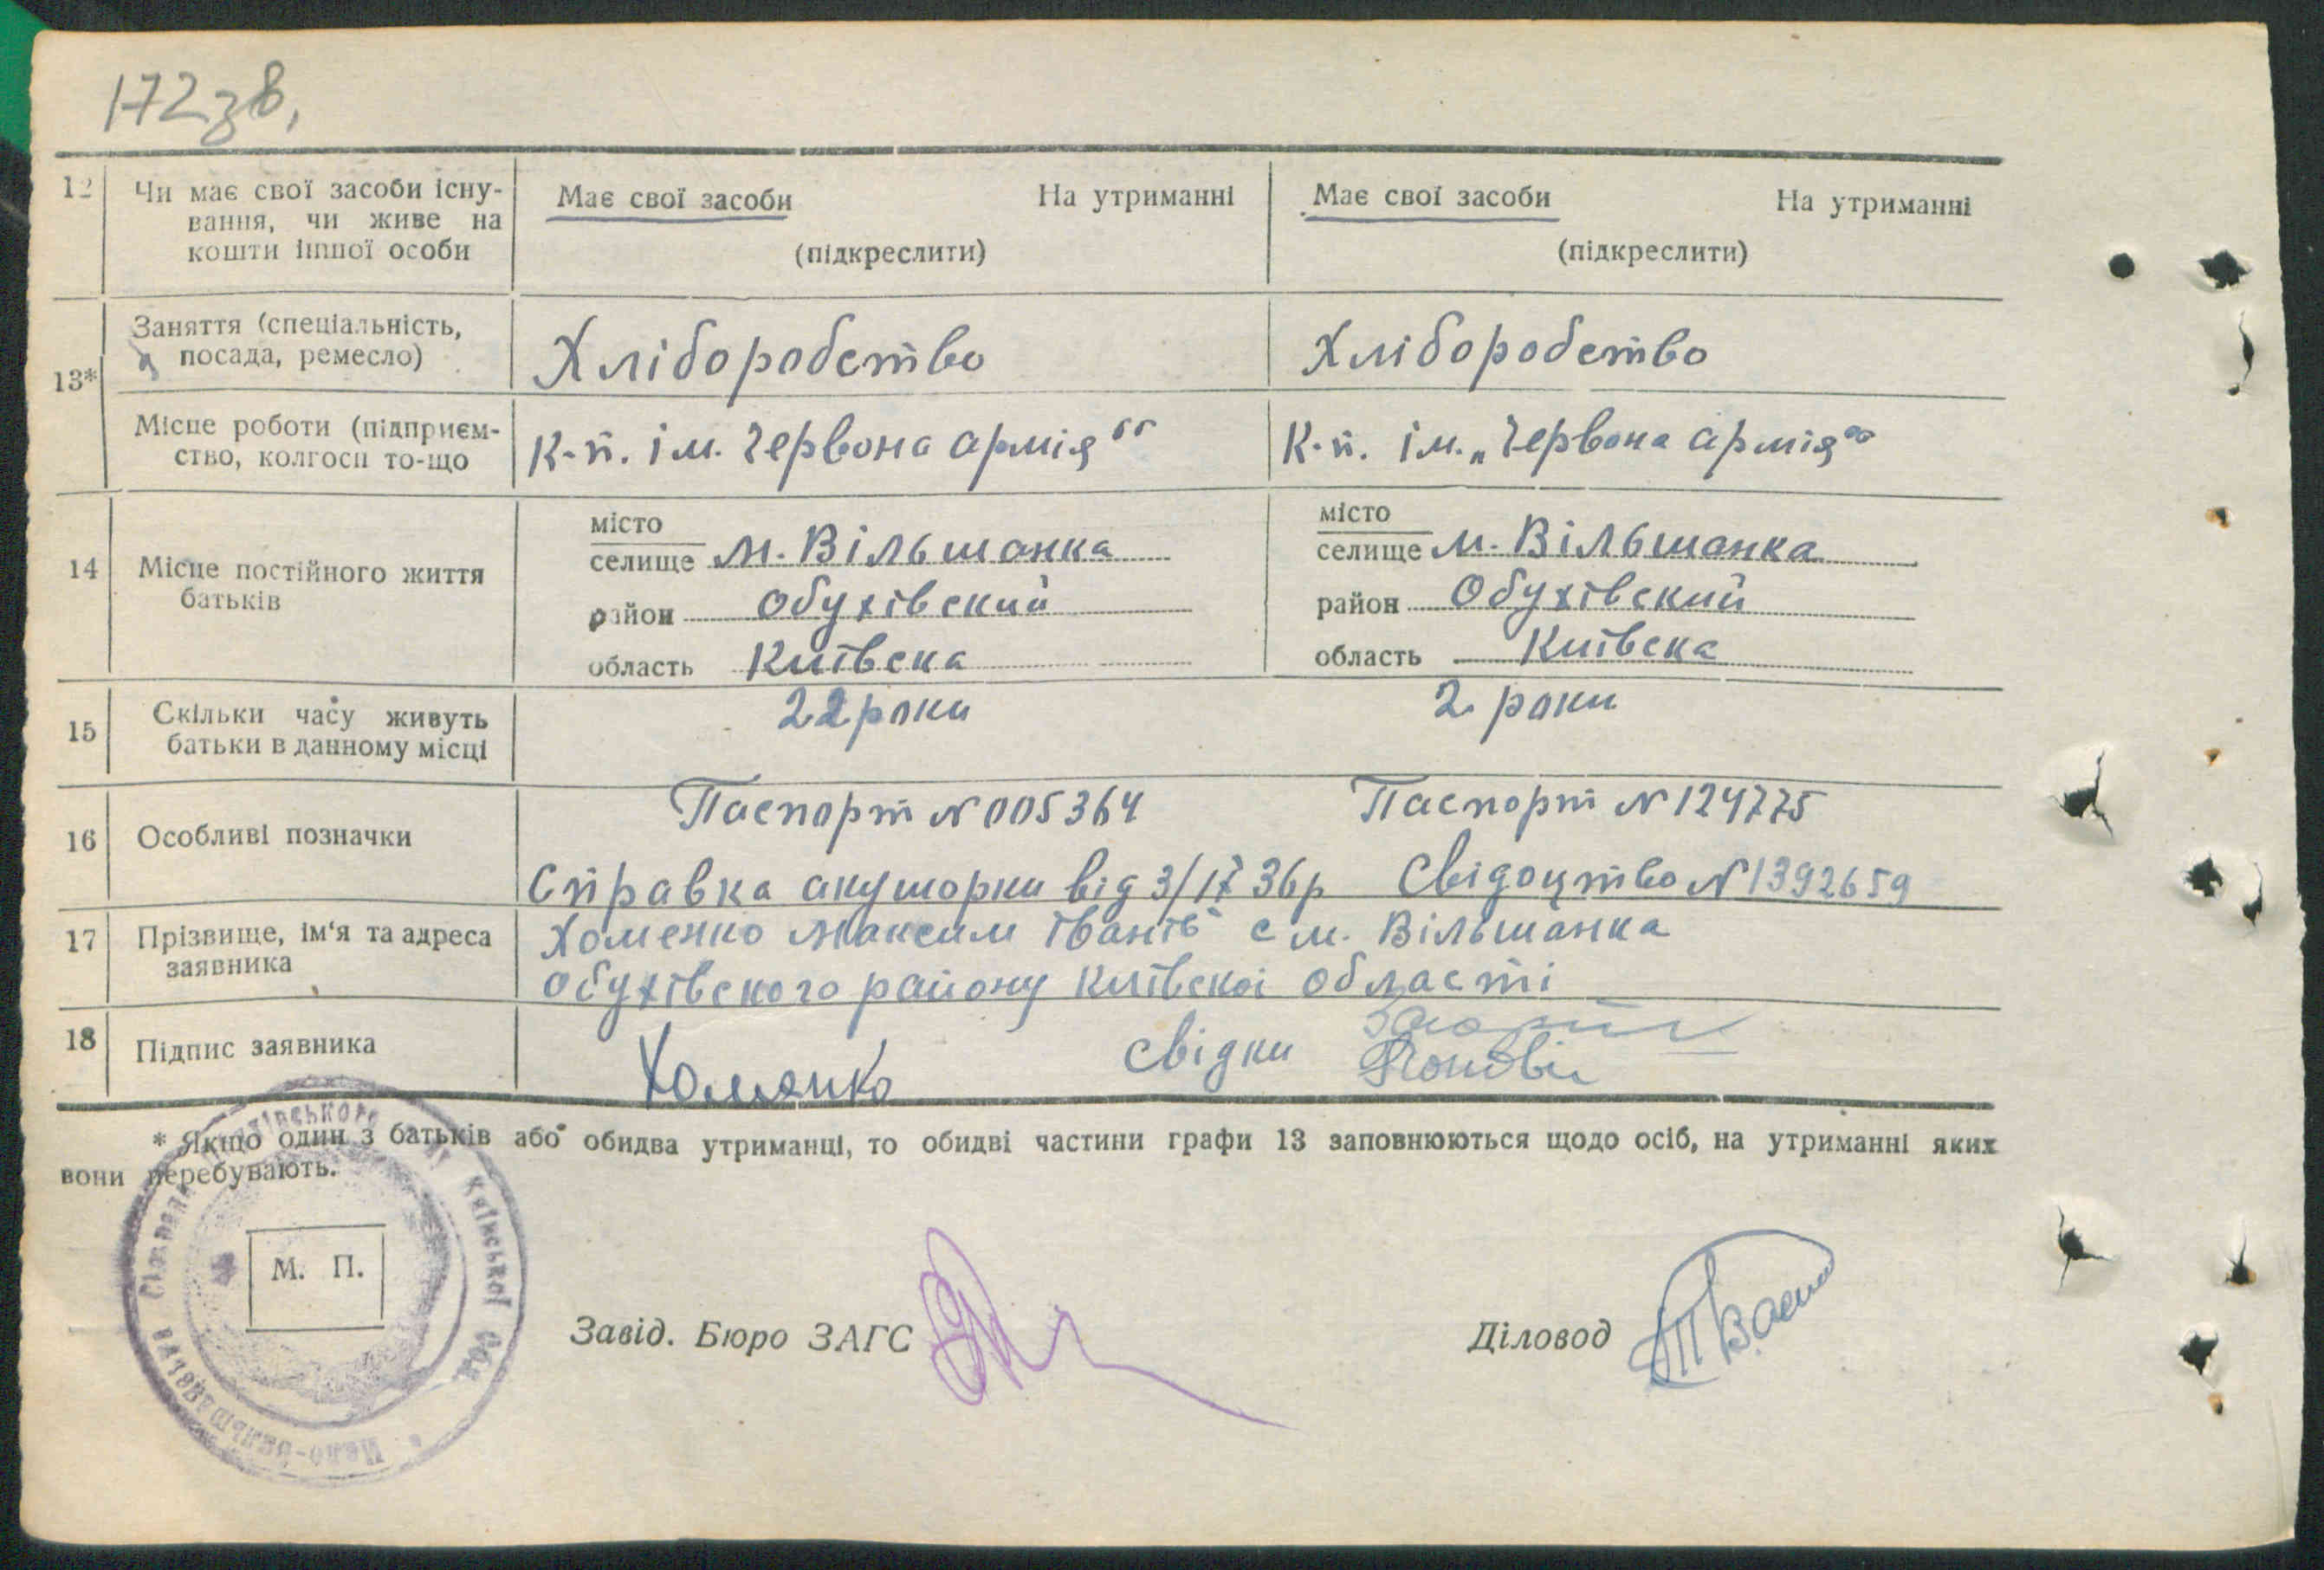 172зв,
12 Чи має свої засоби існу- Має свої засоби На утриманні Має свої засоби На утриманні
вання, чи живе на
кошти іншої особи (підкреслити) (підкреслити)
Заняття (спеціальність,
посада, ремесло) Хліборобство Хліборобство
13*
Місце роботи (підприєм- К-п. ім. Червона армія" К-п. ім. „Червона армія"
ство, колгосп то-що
місто місто
селище м. Вільшанка селище м. Вільшанка
14 Місце постійного життя
батьків район Обухівский район Обухівский
область Київска область Київска
15 Скільки часу живуть 22 роки 2 роки
батьки в данному місці
Паспорт №005364 Паспорт №124775
16 Особливі позначки
Справка акушорки від 36р Свідоцтво №1392659
17 Прізвище, ім'я та адреса Хоменко Максим Іванів с м. Вільшанка
заявника Обухівского району Київскоі області
18 Підпис заявника Хоменко свідки
* Якщо один з батьків або обидва утриманці, то обидві частини графи 13 заповнюються щодо осіб, на утриманні яких
вони перебувають.
М. П.
Київської Обл
Завід. Бюро ЗАГС Діловод